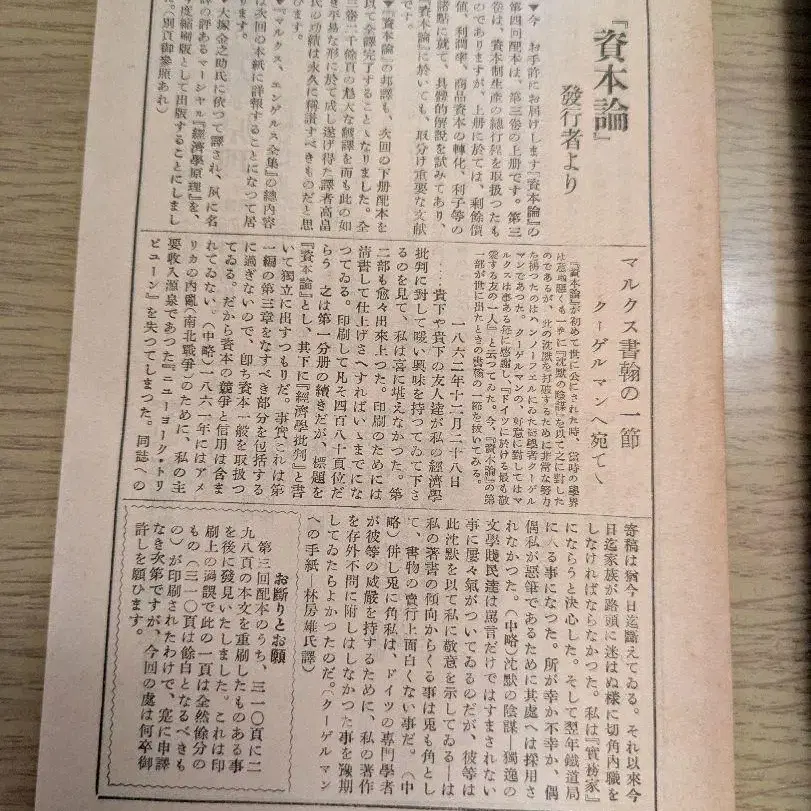 『資本論』
發行者より
▼今、お手許にお屆けします『資本論』の
第四回配本は、第三卷の上册です。第三
卷は、資本制生產の總行程を取扱つたも
のでありますが、上册に於ては、剩餘價
値、利潤率、商品資本の轉化、利子等の
諸點に就て、具體的解說を試みてあり、
『資本論』に於いても、取分け重要な文献
です。
▼『資本論』の邦譯も、次回の下册配本を
以て全譯完了することゝなりました。全
三卷二千餘頁の尨大な飜譯を而も此の如
き平易な形に於て成し遂げ得た譯者高畠
氏の功績は永久に稱讃すべきものだと思
ひます。
▼『マルクス、エンゲルス全集』の總內容
は次回の本紙に詳報することになつて居
ります。
▼大塚金之助氏に依つて譯され、夙に名
譯の評あるマーシャル『經濟學原理』を、
今度縮刷版として出版することにしまし
た。(別頁御參照あれ)
マルクス書翰の一節
クーゲルマンへ宛て
『資本論』が初めて世に公にされた時、當時の學界
は意地惡くも一齊に『沈默の陰謀』を以て之に對した
のであるが、此の沈默を打破するために非常な努力
を拂つたのはハンノーフェルにゐた醫學者クーゲル
マンであつた。クーゲルマンの、好意に對してはマ
ルクスは事ある每に感謝し、『ドイツに於ける最も敬
愛する友の一人』と云つてゐた。今、『資本論』の第
一部が世に出たときの書翰の一節を拔いてみる。
一八六二年十二月二十八日
……貴下や貴下の友人達が私の經濟學
批判に對して暖い興味を持つてゐて下さ
るのを見て、私は喜に堪えなかつた。第
二部も愈々出來上つた。印刷のためには
淸書して仕上げさへすればいゝまでにな
つてゐる。印刷して凡そ四百八十頁位だ
らう 之は第一分册の續きだが、標題を
『資本論』とし、其下に『經濟學批判』と書
いて獨立に出すつもりだ。事實これは第
一編の第三章をなすべき部分を包括する
に過ぎないので、卽ち資本一般を取扱つ
てゐる。だから資本の競爭と信用は含ま
れてゐない。(中略)一八六一年にはアメ
リカの內亂(南北戰爭)のために、私の主
要收入源泉であつた『ニューヨーク・トリ
ビューン』を失つてしまつた。同誌への
寄稿は猶今日迄斷えてゐる。それ以來今
日迄家族が路頭に迷はぬ樣に切角內職を
しなければならなかつた。私は『實務家』
にならうと決心した。そして翌年鐵道局
に入る事になつた。所が幸か不幸か、偶
偶私が惡筆であるために其處へは採用さ
れなかつた。(中略)沈默の陰謀—獨逸の
文學賤民達は罵言だけではすまされない
事に屢々氣がついてゐるのだが、彼等は
此沈默を以て私に敬意を示してゐる—は
私の著書の傾向からくる事は兎も角とし
て、書物の賣行上面白くない事だ。(中
略)併し兎に角私は、ドイツの專門學者
が彼等の威嚴を持するために、私の著作
を存外不問に附しはしなかつた事を豫期
してゐたらよかつたのだ。(クーゲルマン
への手紙—林房雄氏譯)
お斷りとお願
第三回配本のうち、三一〇頁に二
九八頁の本文を重刷したものある事
を後に發見いたしました。これは印
刷上の過誤で此の一頁は全然餘分の
もの(三一〇頁は餘白となるべきも
の)が印刷されたわけで、寔に申譯
なき次第ですが、今回の處は何卒御
許しを願ひます。